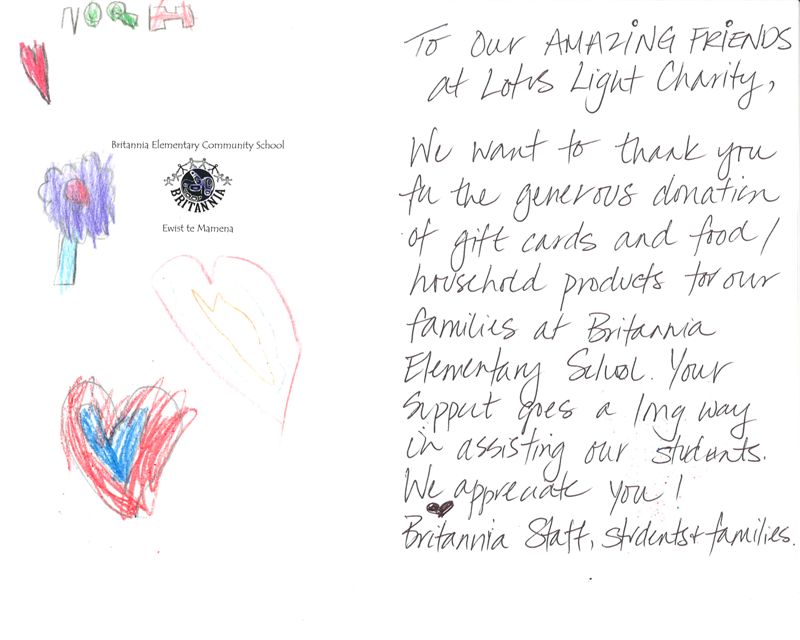 NOAH
Britannia Elementary Community School
BRITANNIA
Ewist te Mamena
To Our AMAZING FRIENDS
at Lotus Light Charity,
We want to thank you
for the generous donation
of gift cards and food/
household products for our
families at Britannia
Elementary School. Your
support goes a long way
in assisting our students.
We appreciate you!
Britannia Staff, students + families.